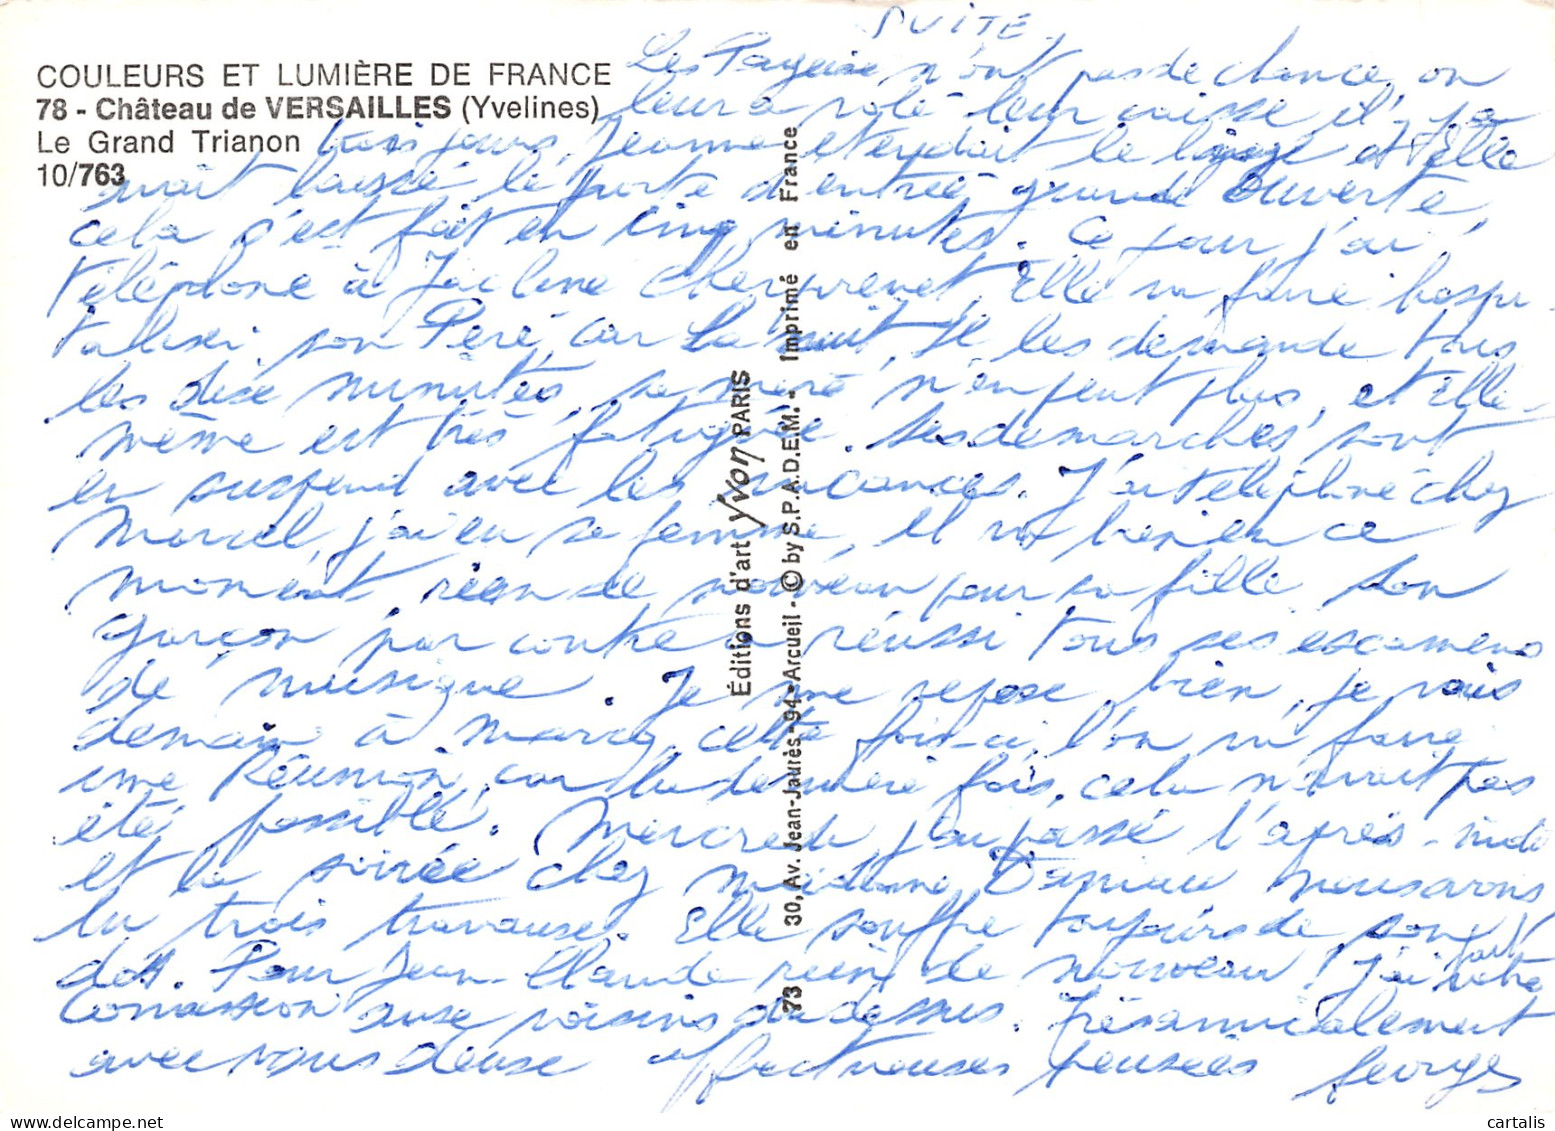 SUITE
COULEURS ET LUMIÈRE DE FRANCE
78 - Château de VERSAILLES (Yvelines)
Le Grand Trianon
10/763
Les n'ont pas de chance, on
leur a volé leur caisse il y a
trois jours, Jeanne etendait le linge et Elle
avait laissé la porte d'entrée grande ouverte,
cela s'est fait en cinq minutes. Ce jour j'ai
téléphone à Jacline Elle va faire hospi
taliser son Père, car la nuit, Il les demande tous
les dixe minutes, sa mère n'en peut plus, et Elle-
même est très fatiguée. Ses demarches sont
en suspend avec les vacances. J'ai téléphoné chez
Marcel, j'ai eu sa femme, il va bien en ce
moment, rien de nouveau pour sa fille Son
garçon par contre a réussi tous ses examens
de musique. Je me repose bien, je vais
demain à cette fois-ci, l'on va faire
une Réunion, car la dernière fois, cela n'avait pas
été possible. Mercredi j'ai passé l'après-midi
et la soirée chez madame nous avons
tous trois Elle souffre toujours de son
dos. Pour Jean-Claude rien de nouveau! J'ai fait votre
Commission aux voisins du dessus. Très amicalement
avec vous deux affectueuses pensées Georges
Éditions d'art yvon PARIS
73 30, Av. Jean-Jaurès - 94 - Arcueil - © by S.P.A.D.E.M. - Imprimé en France
cartalis